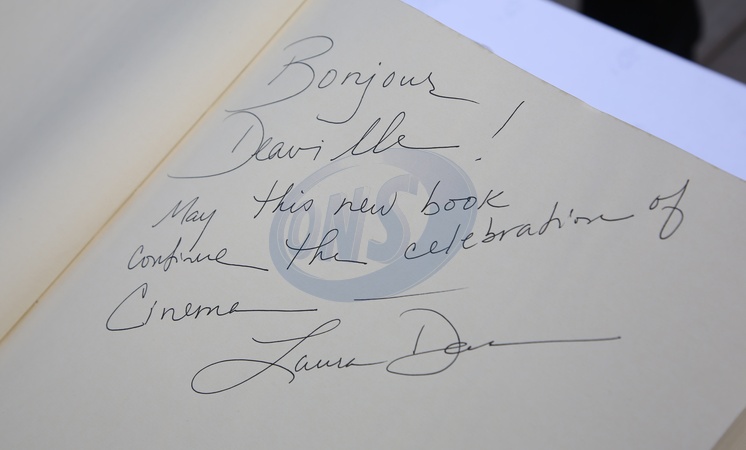 Bonjour
Deaville !
May this new book
continue the celebration of
Cinema
Laura Dern
ONS